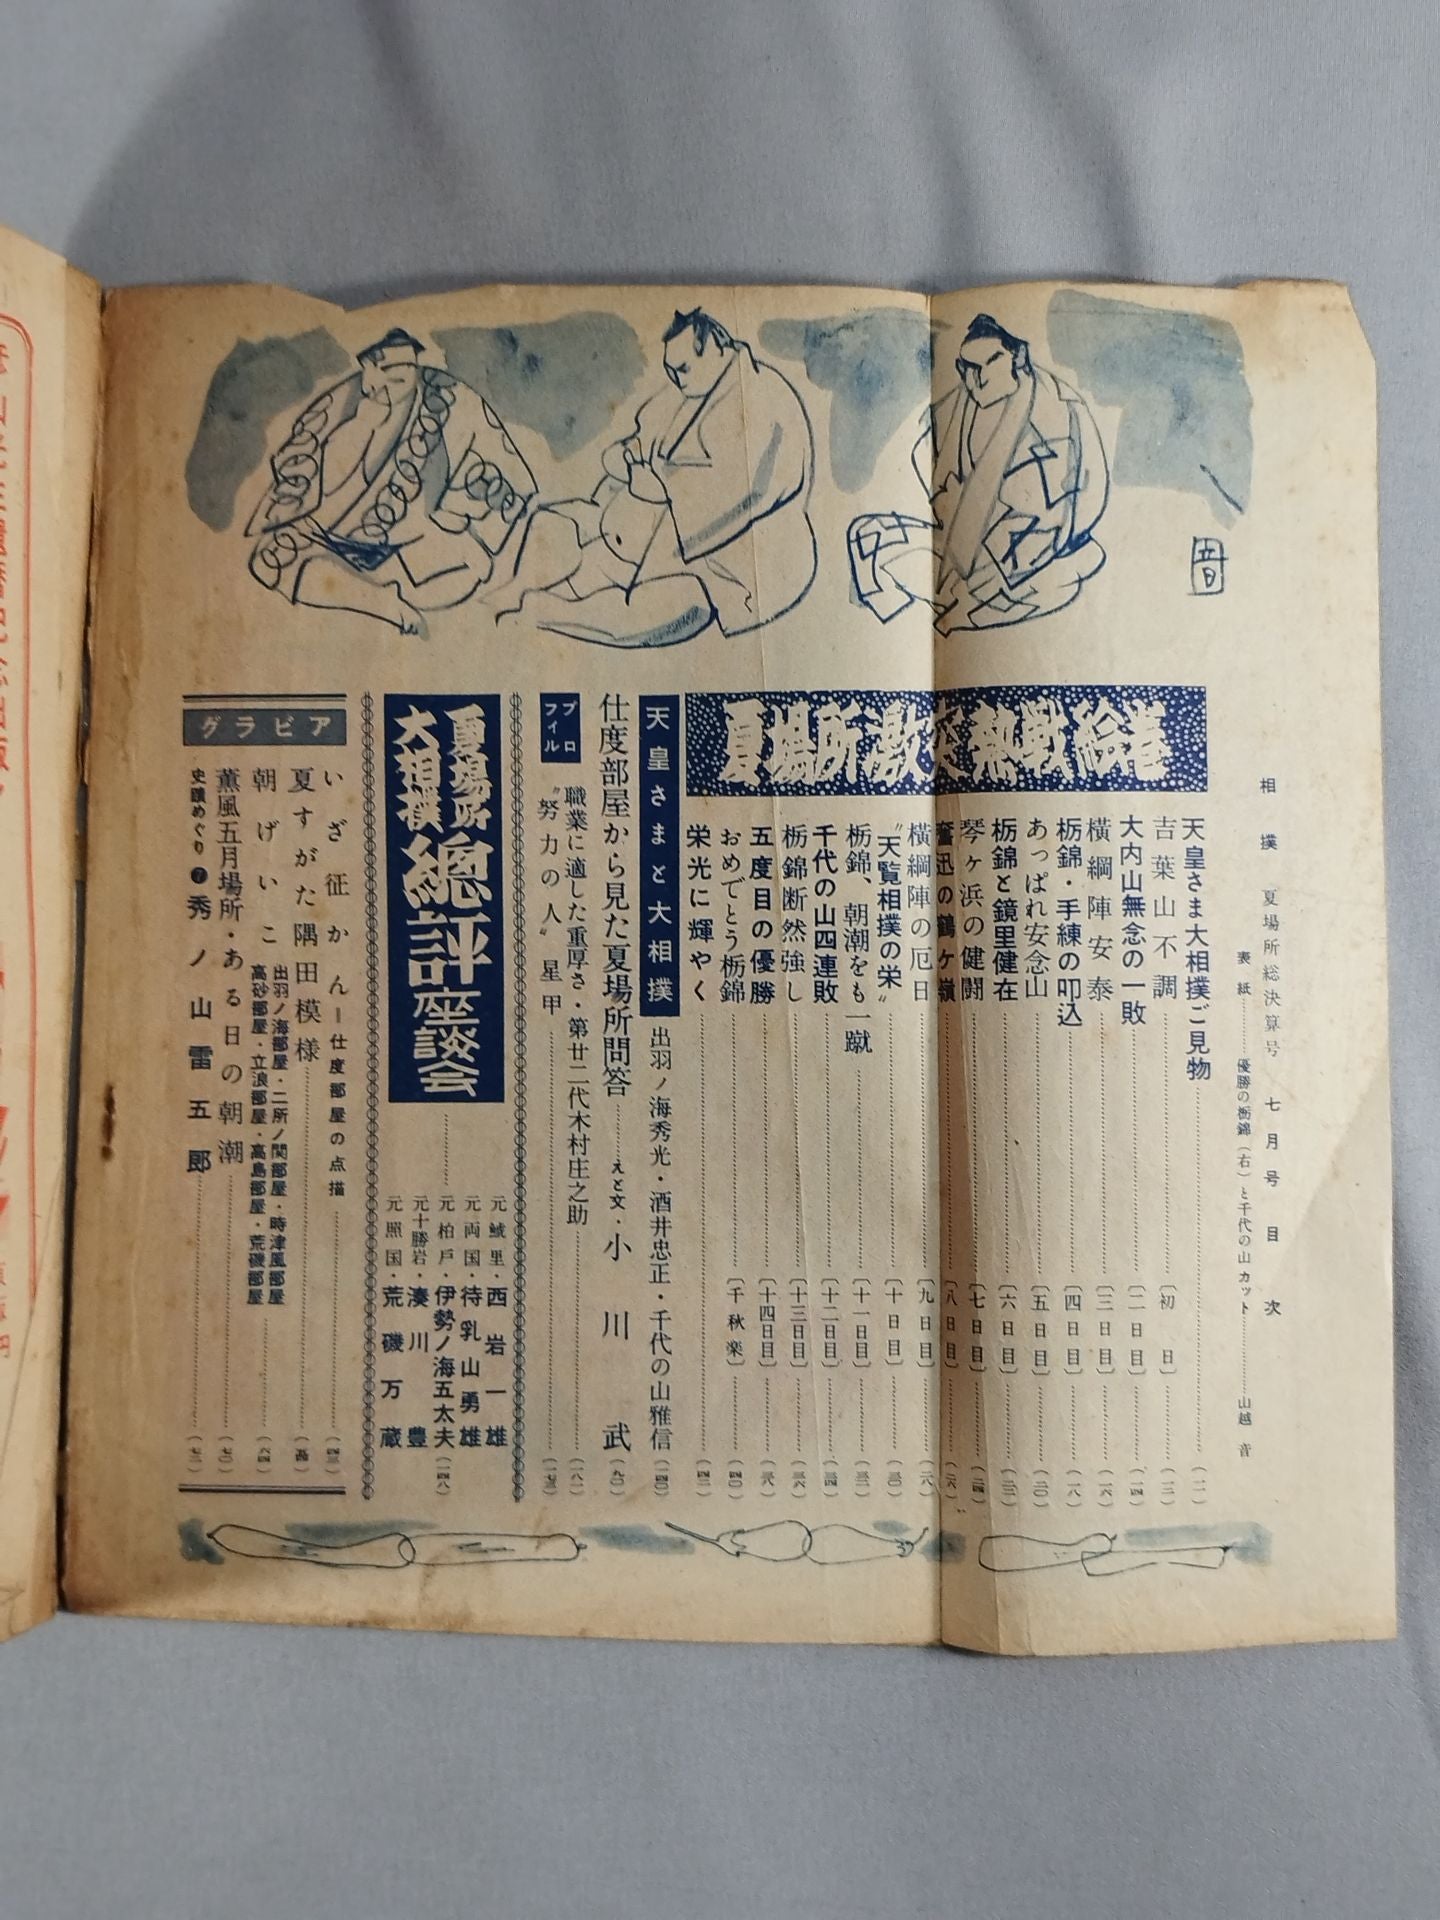 相撲 夏場所総決算号 七月号 目次
表紙……優勝の栃錦（右）と千代の山 カット……山越 音
夏場所激突熱戦絵巻
天皇さま大相撲ご見物……（一一）
吉葉山不調……〔初日〕……（一二）
大内山無念の一敗……〔二日目〕……（一四）
横綱陣安泰……〔三日目〕……（一六）
栃錦・手練の叩込……〔四日目〕……（一八）
あっぱれ安念山……〔五日目〕……（二〇）
栃錦と鏡里健在……〔六日目〕……（二二）
琴ヶ浜の健闘……〔七日目〕……（二四）
奮迅の鶴ヶ嶺……〔八日目〕……（二六）
横綱陣の厄日……〔九日目〕……（二八）
〝天覧相撲の栄〟……〔十日目〕……（三〇）
栃錦、朝潮をも一蹴……〔十一日目〕……（三二）
千代の山四連敗……〔十二日目〕……（三四）
栃錦断然強し……〔十三日目〕……（三六）
五度目の優勝……〔十四日目〕……（三八）
おめでとう栃錦……〔千秋楽〕……（四〇）
栄光に輝やく……（四二）
天皇さまと大相撲 出羽ノ海秀光・酒井忠正・千代の山雅信（一四〇）
仕度部屋から見た夏場所問答……えと文・小川 武（九〇）
プロフィル
職業に適した重厚さ・第廿二代木村庄之助……（一八一）
〝努力の人〟星甲……（一七三）
夏場所大相撲総評座談会……（一四八）
元鯱里・西岩一雄
元両国・待乳山勇雄
元柏戸・伊勢ノ海五太夫
元十勝岩・湊川 豊
元照国・荒磯万蔵
グラビア
いざ征かん―仕度部屋の点描……（四三）
夏すがた隅田模様……（五四）
朝げいこ 出羽ノ海部屋・二所ノ関部屋・時津風部屋
高砂部屋・立浪部屋・高島部屋・荒磯部屋……（六四）
薫風五月場所・ある日の朝潮……（七〇）
史蹟めぐり❼秀ノ山雷五郎……（七二）